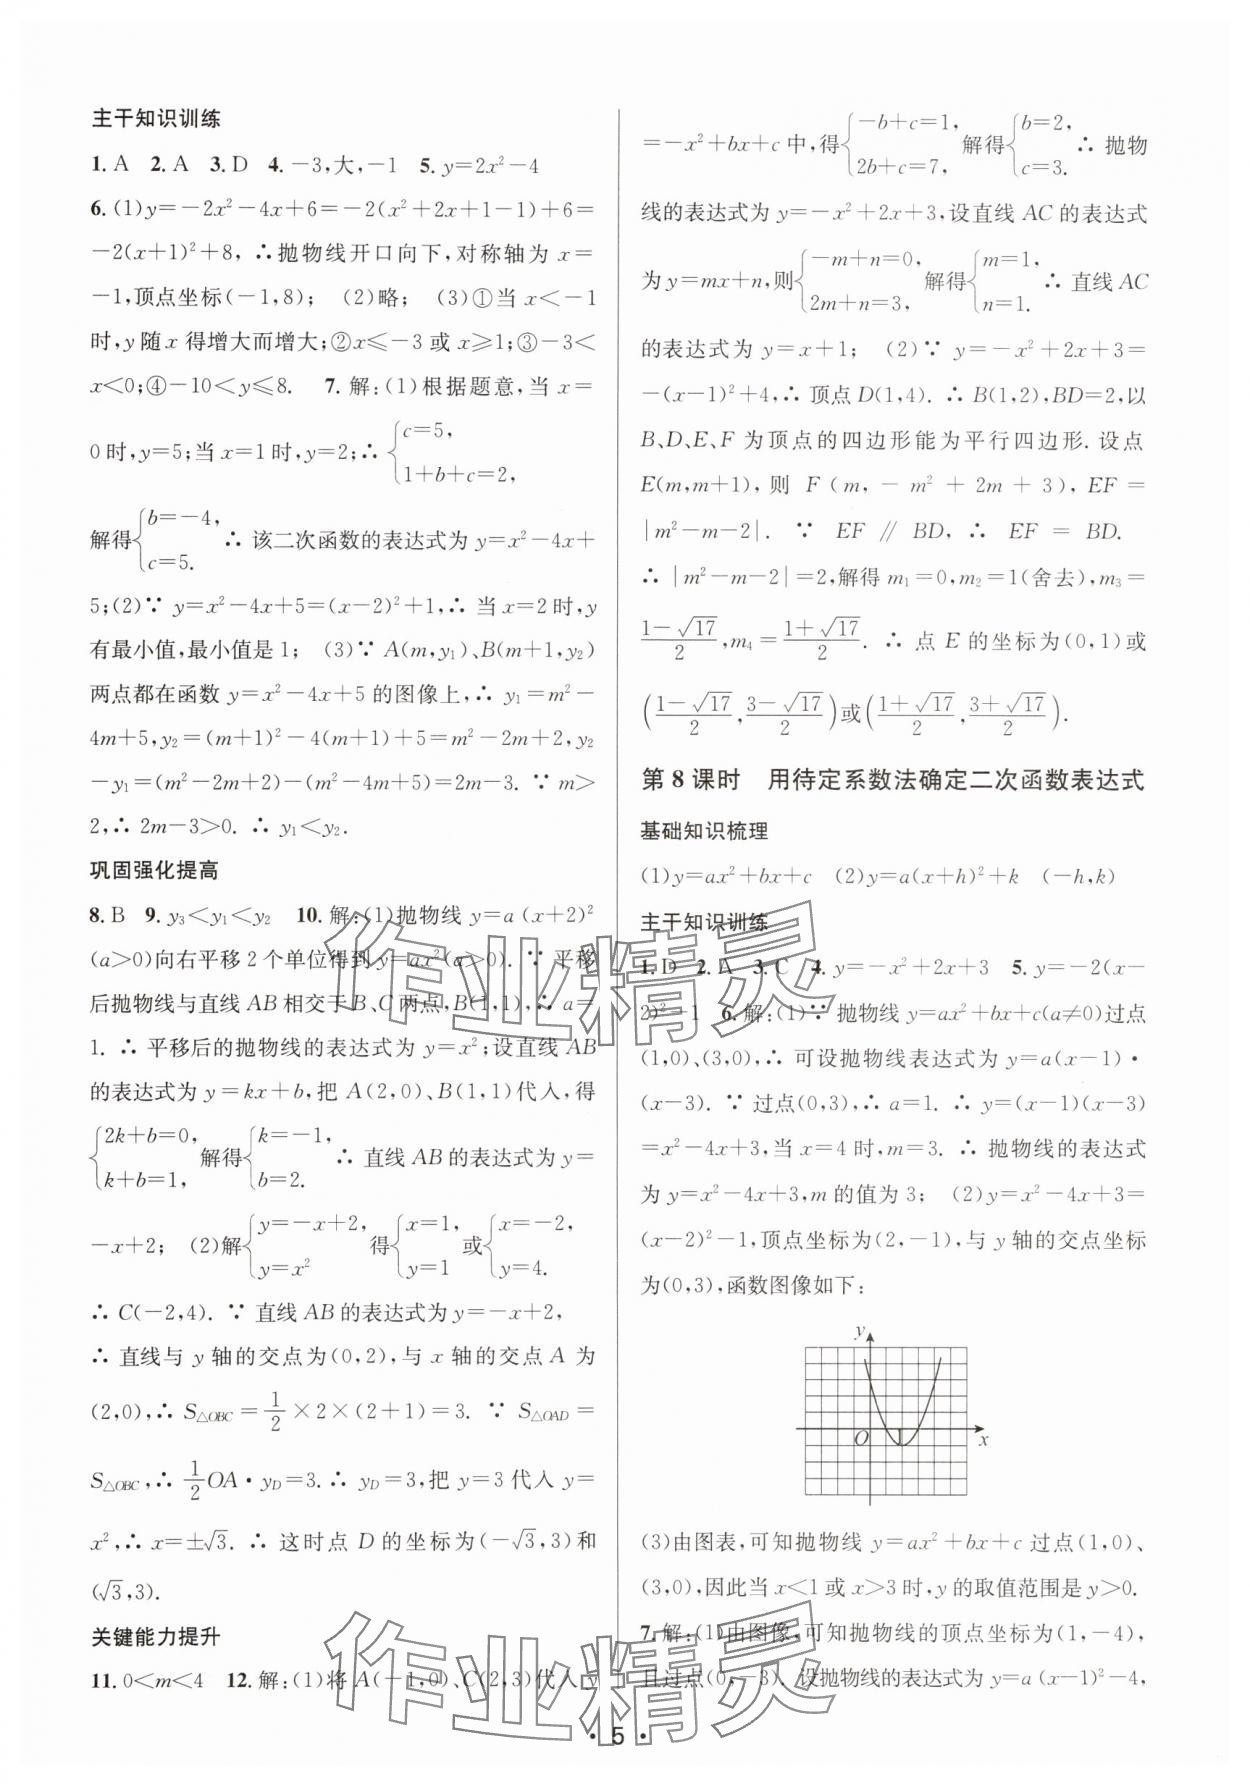 主干知识训练
1. A 2. A 3. D 4. －3,大,－1 5. y=2x²－4
6. (1)y=－2x²－4x+6=－2(x²+2x+1－1)+6=
－2(x+1)²+8, ∴抛物线开口向下,对称轴为 x=
－1,顶点坐标(－1,8); (2)略; (3)①当 x<－1
时,y 随 x 得增大而增大;②x≤－3 或 x≥1;③－3<
x<0;④－10<y≤8. 7. 解:(1)根据题意,当 x=
0 时,y=5;当 x=1 时,y=2;∴ {c=5, 1+b+c=2,
解得{b=－4, c=5. ∴ 该二次函数的表达式为 y=x²－4x+
5;(2)∵ y=x²－4x+5=(x－2)²+1,∴ 当 x=2 时,y
有最小值,最小值是 1; (3)∵ A(m,y₁)、B(m+1,y₂)
两点都在函数 y=x²－4x+5 的图像上,∴ y₁=m²－
4m+5,y₂=(m+1)²－4(m+1)+5=m²－2m+2,y₂
－y₁=(m²－2m+2)－(m²－4m+5)=2m－3. ∵ m>
2,∴ 2m－3>0. ∴ y₁<y₂.
巩固强化提高
8. B 9. y₃<y₁<y₂ 10. 解:(1)抛物线 y=a (x+2)²
(a>0)向右平移 2 个单位得到 y=ax²(a>0). ∵ 平移
后抛物线与直线 AB 相交于 B、C 两点,B(1,1),∴ a=
1. ∴ 平移后的抛物线的表达式为 y=x²;设直线 AB
的表达式为 y=kx+b,把 A(2,0)、B(1,1)代入,得
{2k+b=0, k+b=1, 解得{k=－1, b=2. ∴ 直线 AB 的表达式为 y=
－x+2; (2)解{y=－x+2, y=x² 得{x=1, y=1 或{x=－2, y=4.
∴ C(－2,4). ∵ 直线 AB 的表达式为 y=－x+2,
∴ 直线与 y 轴的交点为(0,2),与 x 轴的交点 A 为
(2,0),∴ S△OBC=1/2×2×(2+1)=3. ∵ S△OAD=
S△OBC,∴ 1/2OA·yD=3.∴ yD=3,把 y=3 代入 y=
x²,∴ x=±√3. ∴ 这时点 D 的坐标为(－√3,3)和
(√3,3).
关键能力提升
11. 0<m<4 12. 解:(1)将 A(－1,0)、C(2,3)代入 y
=－x²+bx+c 中,得{－b+c=1, 2b+c=7, 解得{b=2, c=3. ∴ 抛物
线的表达式为 y=－x²+2x+3,设直线 AC 的表达式
为 y=mx+n,则{－m+n=0, 2m+n=3, 解得{m=1, n=1. ∴ 直线 AC
的表达式为 y=x+1; (2)∵ y=－x²+2x+3=
－(x－1)²+4,∴ 顶点 D(1,4). ∴ B(1,2),BD=2,以
B、D、E、F 为顶点的四边形能为平行四边形. 设点
E(m,m+1),则 F(m,－m²+2m+3),EF=
|m²－m－2|. ∵ EF∥BD,∴ EF=BD.
∴ |m²－m－2|=2,解得 m₁=0,m₂=1(舍去),m₃=
(1－√17)/2,m₄=(1+√17)/2. ∴ 点 E 的坐标为(0,1)或
((1－√17)/2,(3－√17)/2)或((1+√17)/2,(3+√17)/2).
第 8 课时 用待定系数法确定二次函数表达式
基础知识梳理
(1)y=ax²+bx+c (2)y=a(x+h)²+k (－h,k)
主干知识训练
1. D 2. A 3. C 4. y=－x²+2x+3 5. y=－2(x－
2)²－1 6. 解:(1)∵ 抛物线 y=ax²+bx+c(a≠0)过点
(1,0)、(3,0),∴ 可设抛物线表达式为 y=a(x－1)·
(x－3). ∵ 过点(0,3),∴ a=1. ∴ y=(x－1)(x－3)
=x²－4x+3,当 x=4 时,m=3. ∴ 抛物线的表达式
为 y=x²－4x+3,m 的值为 3; (2)y=x²－4x+3=
(x－2)²－1,顶点坐标为(2,－1),与 y 轴的交点坐标
为(0,3),函数图像如下:
y
O
1
x
(3)由图表,可知抛物线 y=ax²+bx+c 过点(1,0)、
(3,0),因此当 x<1 或 x>3 时,y 的取值范围是 y>0.
7. 解:(1)由图像,可知抛物线的顶点坐标为(1,－4),
且过点(0,－3). 设抛物线的表达式为 y=a (x－1)²－4,
· 5 ·
作业精灵
作业精灵